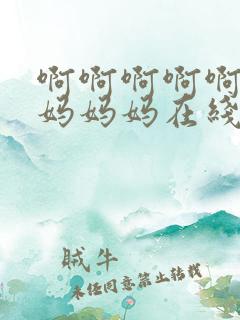 啊啊啊啊啊
妈妈妈在线
贼牛
未经同意禁止转载